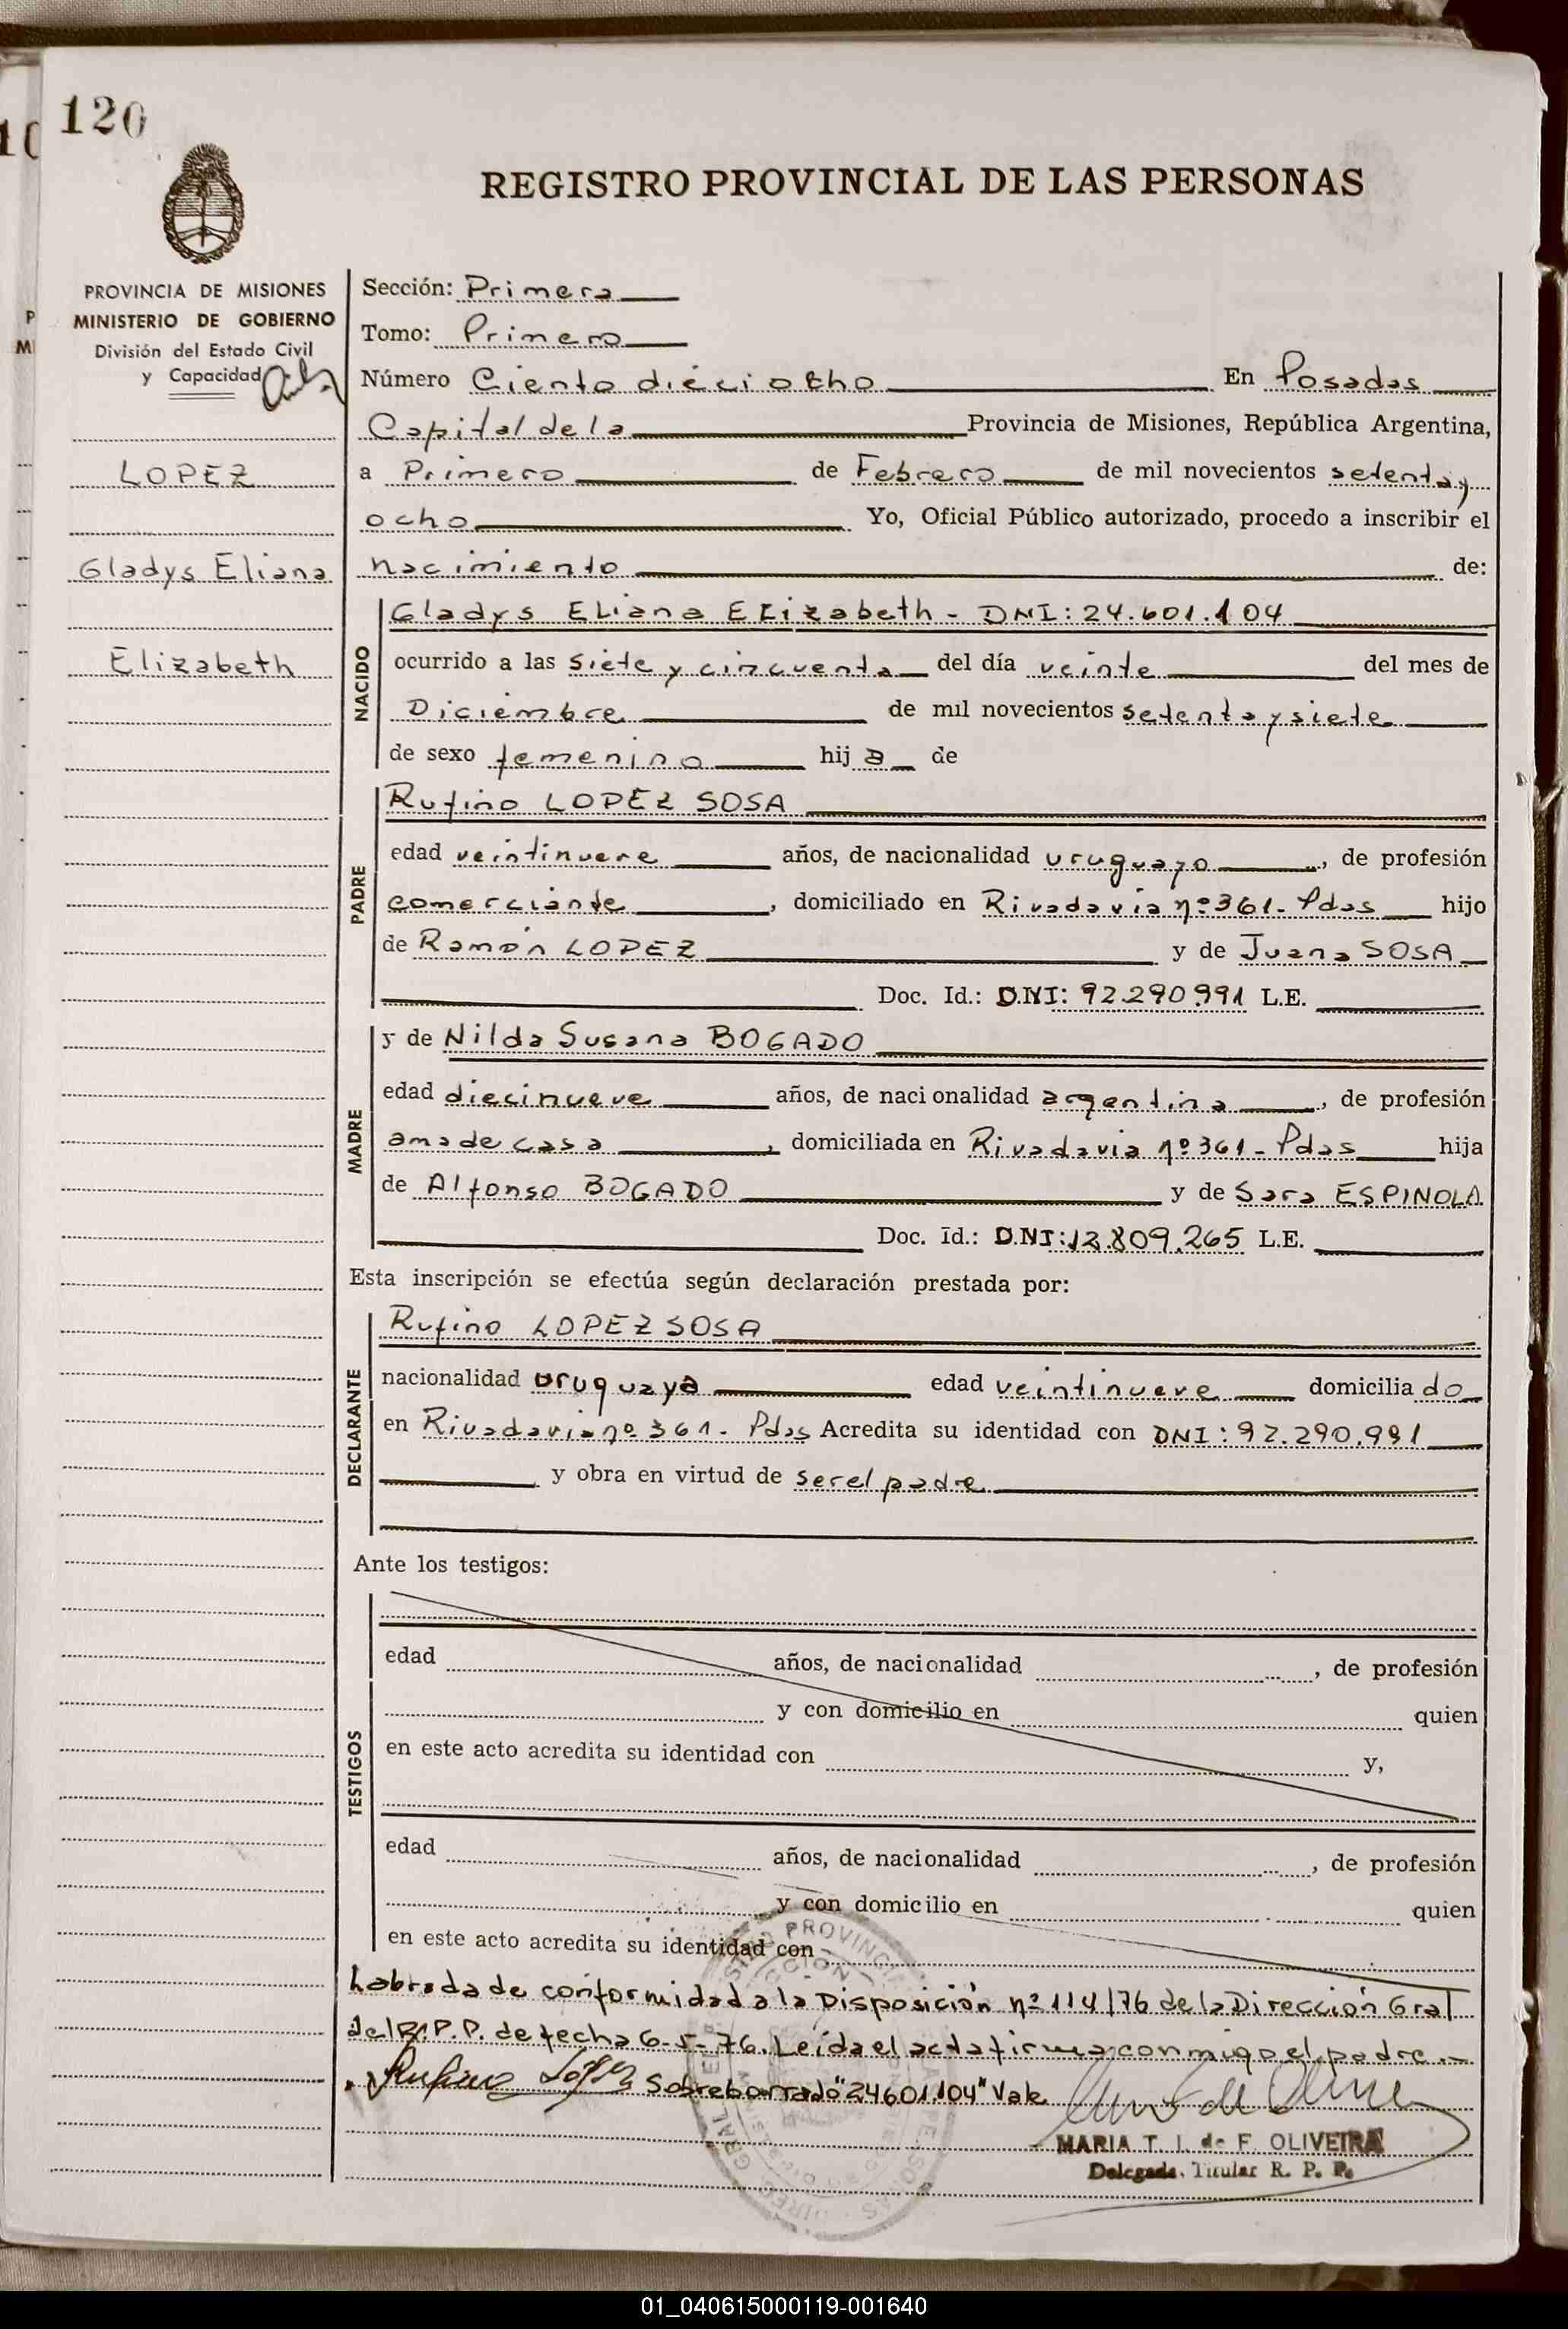 120
REGISTRO PROVINCIAL DE LAS PERSONAS
PROVINCIA DE MISIONES
MINISTERIO DE GOBIERNO
División del Estado Civil
y Capacidad
LOPEZ
Gladys Eliana
Elizabeth
Sección: Primera
Tomo: Primero
Número Ciento dieciocho En Posadas
Capital de la Provincia de Misiones, República Argentina,
a Primero de Febrero de mil novecientos setenta y
ocho Yo, Oficial Público autorizado, procedo a inscribir el
nacimiento de:
NACIDO
Gladys Eliana Elizabeth - DNI: 24.601.104
ocurrido a las siete y cincuenta del día veinte del mes de
Diciembre de mil novecientos setenta y siete
de sexo femenino hij a de
PADRE
Rufino LOPEZ SOSA
edad veintinueve años, de nacionalidad uruguayo, de profesión
comerciante, domiciliado en Rivadavia nº 361- Pdas hijo
de Ramón LOPEZ y de Juana SOSA
Doc. Id.: D.NI: 92.290.991 L.E.
MADRE
y de Nilda Susana BOGADO
edad diecinueve años, de nacionalidad argentina, de profesión
ama de casa, domiciliada en Rivadavia nº 361- Pdas hija
de Alfonso BOGADO y de Sara ESPINOLA
Doc. Id.: D.NI: 12.809.265 L.E.
Esta inscripción se efectúa según declaración prestada por:
DECLARANTE
Rufino LOPEZ SOSA
nacionalidad uruguaya edad veintinueve domicilia do
en Rivadavia nº 361- Pdas Acredita su identidad con DNI: 92.290.991
y obra en virtud de ser el padre
Ante los testigos:
TESTIGOS
edad años, de nacionalidad , de profesión
y con domicilio en quien
en este acto acredita su identidad con y,
edad años, de nacionalidad , de profesión
y con domicilio en quien
en este acto acredita su identidad con
Labrada de conformidad a la Disposición nº 114/76 de la Dirección Gral
del R.P.P. de fecha 6-5-76. Leída el acta firma conmigo el padre.-
Rufino López Sobreborrado "24601.104" Vale
MARIA T. I. de F. OLIVEIRA
Delegada Titular R. P. P.
01_040615000119-001640